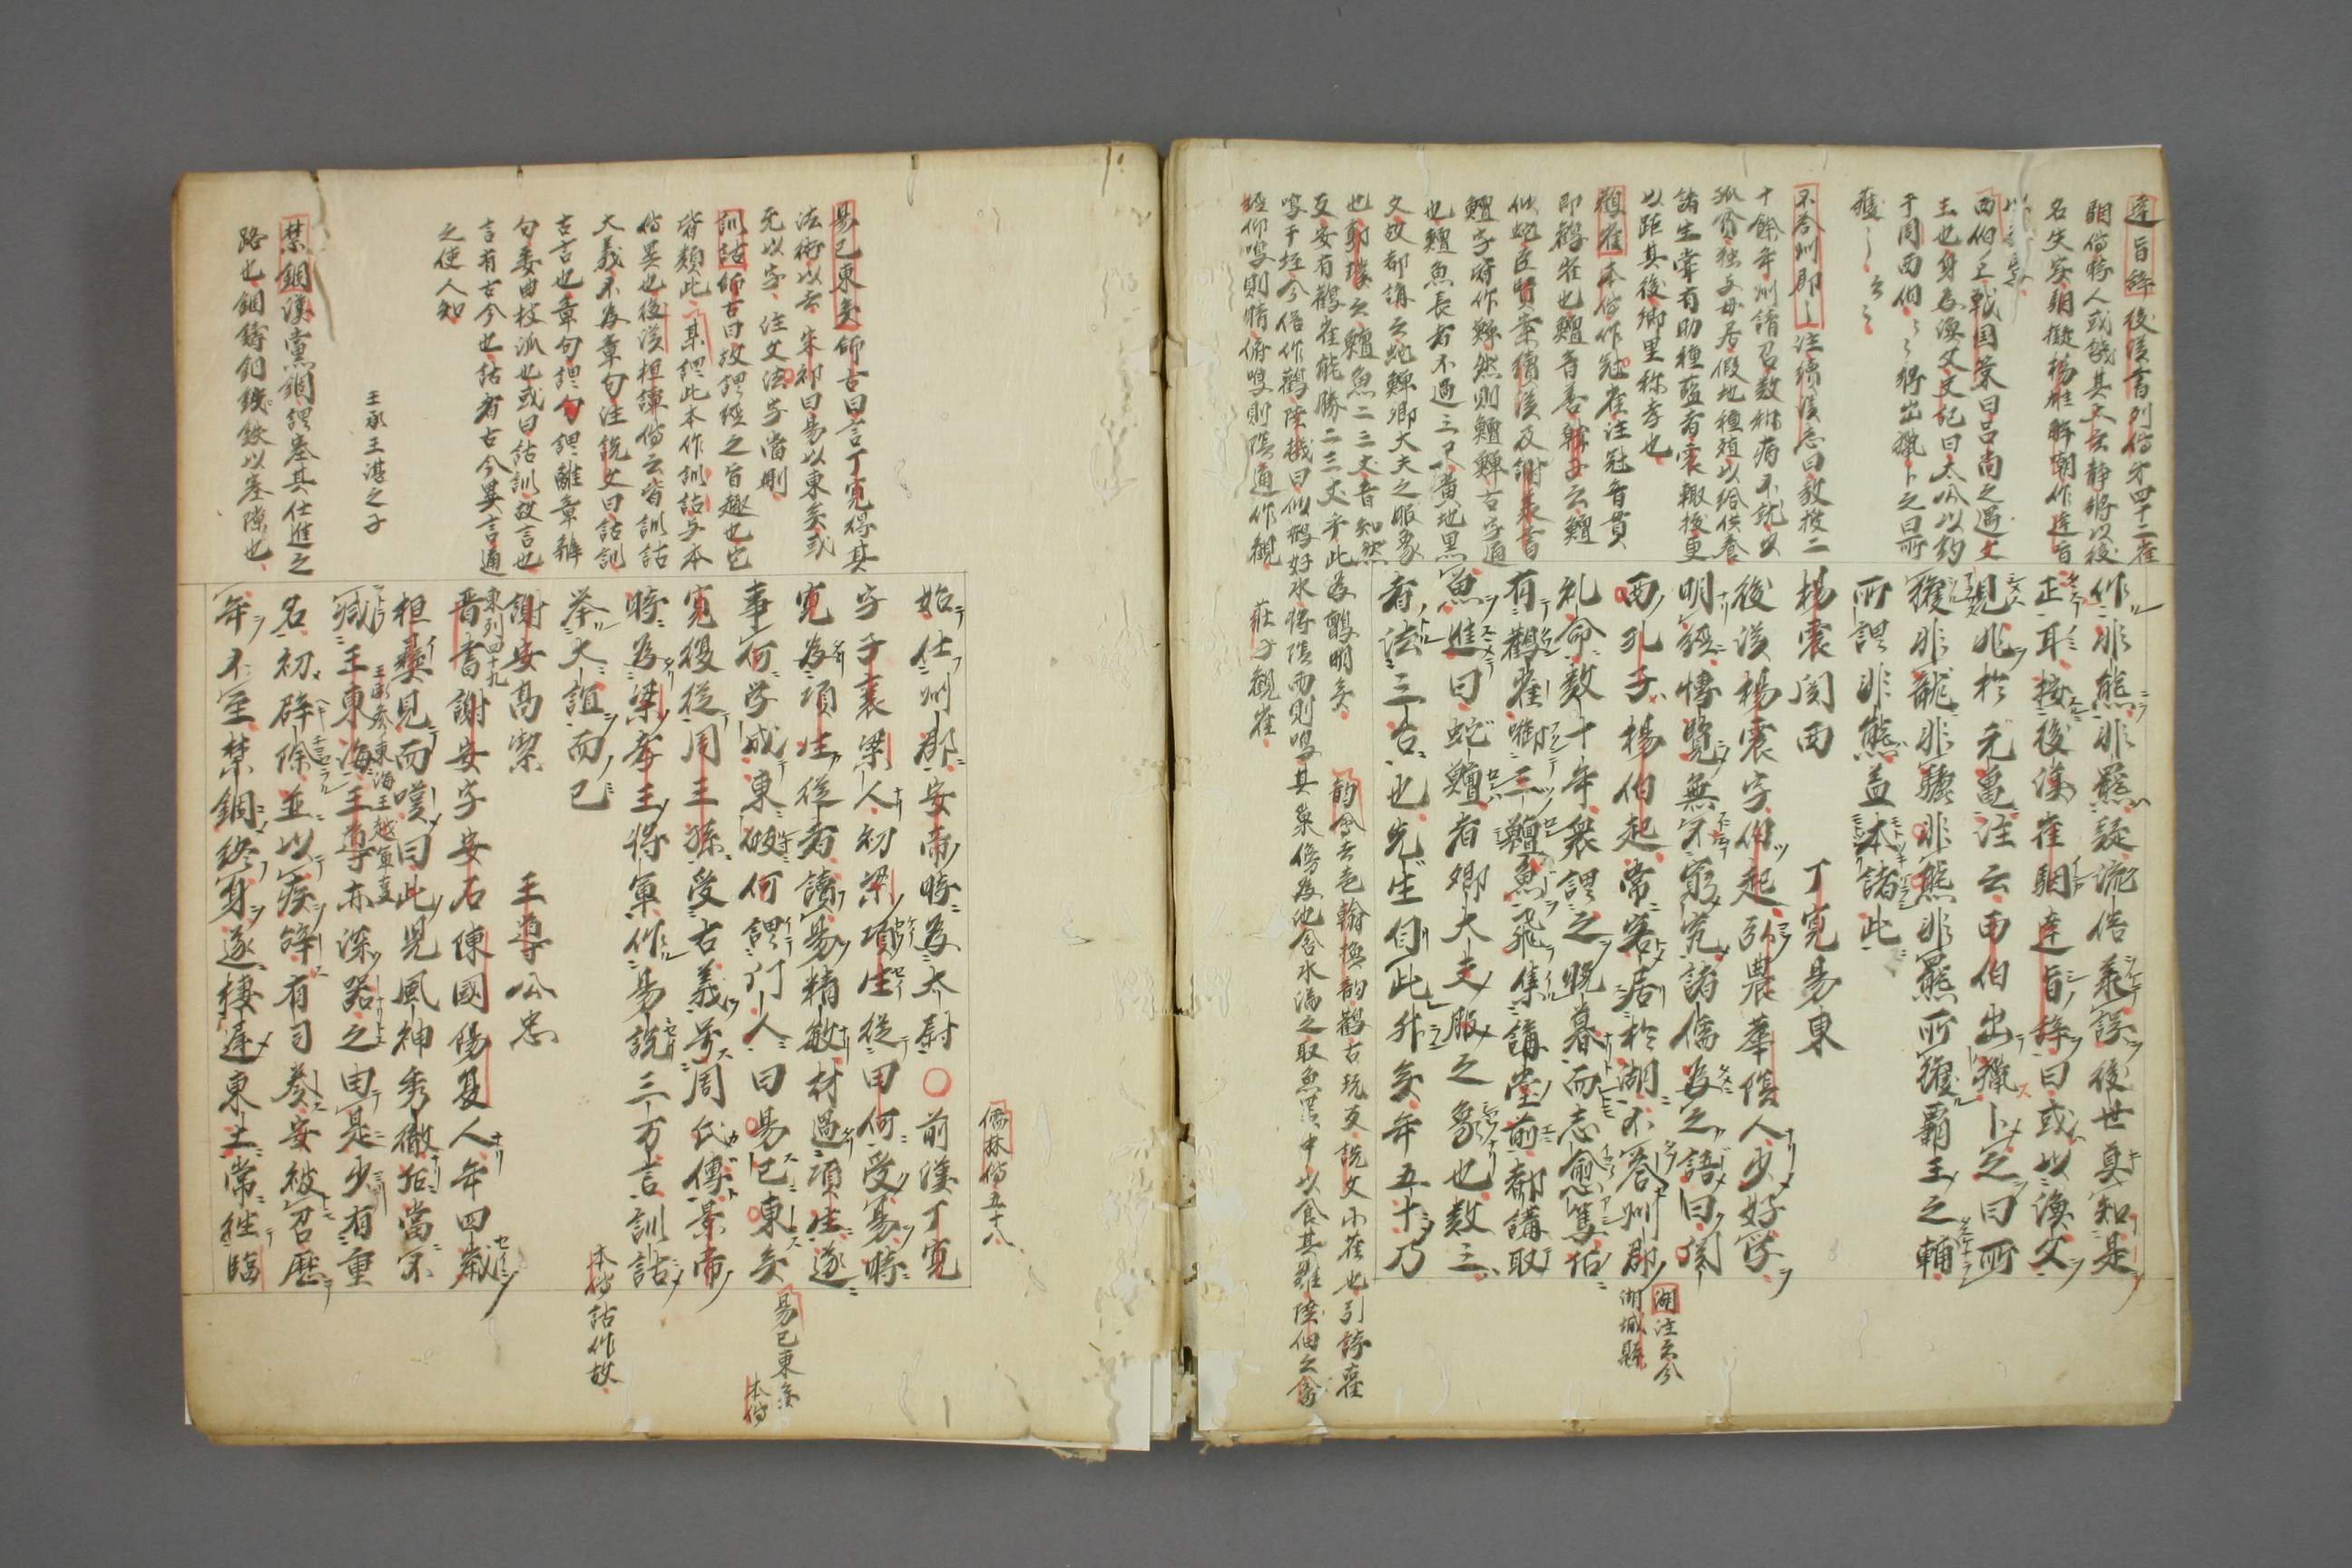 達旨辞後漢書列傳才四十二崔
駰傳時人或譏其太玄静將以後
名失実駰擬楊雄解嘲作達旨
西伯ーー戦国策曰呂尚之遇文
王也身為漁父史記曰太公以釣
于周西伯〻〻将出猟卜之曰所
獲ー〻〻〻
不答州郡ー注續漢志曰教授二
十餘年州請召数称病不就少
孤貧独与母居假地種殖以給供養
諸生嘗有助種藍者震輙抜更
以距其後郷里称孝也
鸛雀本傳作冠雀注冠音貫
即鸛雀也鱣音善韓子云鱣
似蛇臣賢案續漢及謝承書
鱣字皆作鱓然則鱣鱓古字通
也鱣魚長者不過三尺黄地黒
文故都講云蛇鱓卿大夫之服象
也郭璞云鱣魚二三丈音知然
反安有鸛雀能勝二三丈乎此為鸇明矣
鳴于垤今俗作鸛陸機曰似鶴好水将陰雨則鳴其巣傍為池含水満之取魚置中以食其雛陸佃云禽
經仰鳴則晴俯鳴則陰通作觀 荘子觀雀
韵會去声翰換韵鸛古玩反説文小雀也引詩雚
作非熊非羆疑流俗承誤後世莫知是
正耳按後漢崔駰達旨辞曰或以漁父
見兆於元亀注云西伯出猟卜之曰所
獲非龍非驪非熊非羆所獲覇王之輔
所謂非熊蓋本諸此
楊震関西 丁寛易東
後漢楊震字伯起弘農華陰人少好学
明經博覧無不窮究諸儒為之語曰関
西孔子楊伯起常客居於湖不答州郡
礼命数十年衆謂之晩暮而志愈篤後
有鸛雀啣三鱣魚飛集講堂前都講取
魚進曰蛇鱣者卿大夫服之象也数三
者法三台也先生自此升矣年五十乃
湖注云今
湖城縣
儒林傳五十八
始仕州郡安帝時為太尉〇前漢丁寛
字子襄梁人初梁項生從田何受易時
寛為項生從者讀易精敏材過項生遂
事何学成東皈何謂門人曰易已東矣
寛復從周王孫受古義号周氏傳景帝
時為梁孝王将軍作易説三万言訓詁
挙大誼而已
謝安髙潔 王導公忠
晋書謝安字安石陳國陽夏人年四歳
東列四十九
桓彝見而嘆曰此児風神秀徹後當不
王承參東海王越軍事
减王東海王導亦深器之由是少有重
名初辟除並以疾辞有司奏安被召歴
年不至禁錮終身遂棲遅東土常徃臨
易已東矣師古曰言丁寛得其
法術以去 宋祁曰易以東矣或
无以字 注文法字當刪
訓詁師古曰故謂經之旨趣也它
皆類此 某謂此本作訓詁与本
傳異也後漢桓譚傳云皆訓詁
大義不為章句注説文曰詁訓
古言也章句謂句謂離章辨
句委曲枝派也或曰詁訓故言也
言有古今也詁者古今異言通
之使人知
王承王湛之子
禁錮漢黨錮謂塞其仕進之
路也錮鋳銅鉄以塞隙也
易已東矣
本傳
本傳詁作故